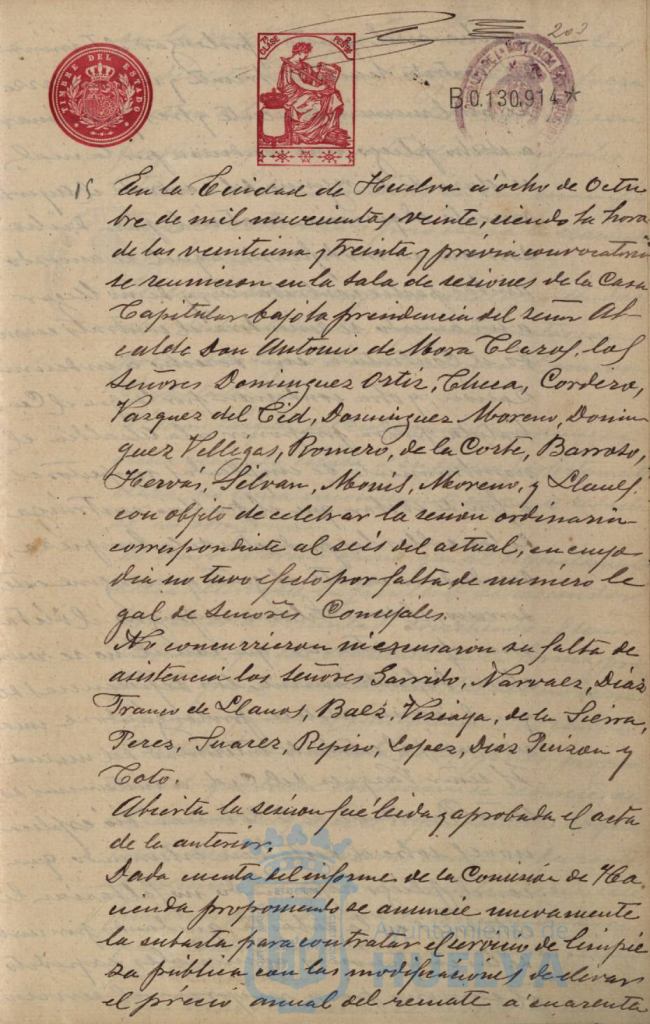 203
TIMBRE DEL ESTADO
CLASE
B.0.130.914*
15 En la Ciudad de Huelva á ocho de Octu
bre de mil nuevecientos veinte, siendo la hora
de las veintiuna y treinta y prévia convocatoria
se reunieron en la sala de sesiones de la Casa
Capitular bajo la presidencia del señor Al
calde Don Antonio de Mora Claros, los
Señores Dominguez Ortiz, Checa, Cordero,
Vazquez del Cid, Dominguez Moreno, Domin
guez Villigas, Romero, de la Corte, Barroso,
Hervás, Silvan, Monis, Moreno, y Llanes
con objeto de celebrar la sesion ordinaria
correspondiente al seis del actual, en cuyo
dia no tuvo efecto por falta de número le
gal de Señores Concejales.
No concurrieron ni escusaron su falta de
asistencia los Señores Garrido, Narvaez, Diáz
Franco de Llanos, Baéz, Vizcaya, de la Sierra,
Perez, Suarez, Repiso, Lopez, Diáz y
Toto.
Abierta la sesion fué leida y aprobada el acta
de la anterior.
Dada cuenta del informe de la Comisión de Ha
cienda proponiendo se anuncie nuevamente
la subasta para contratar el servicio de limpie
za pública con las modificaciones de elevar
el précio anual del remate á cuarenta
Ayuntamiento de
HUELVA